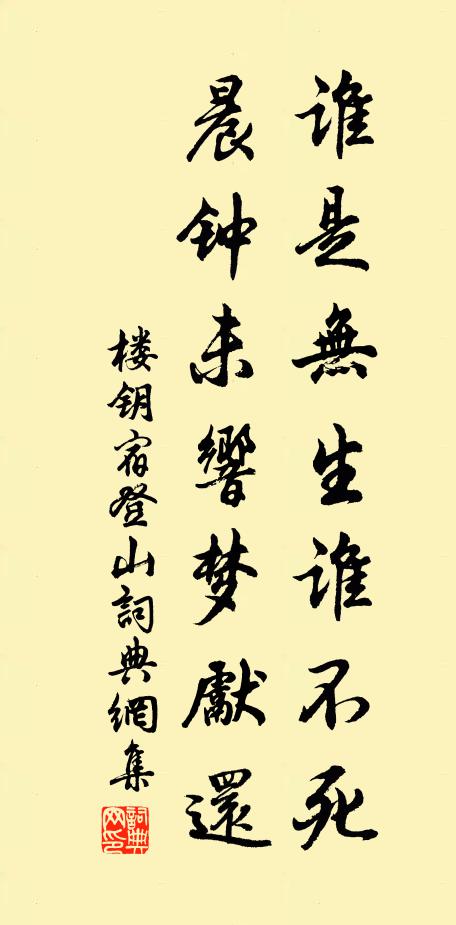 谁是無生谁不死
晨钟未響梦獻還
楼钥宿登山詞典網集
詞典网印